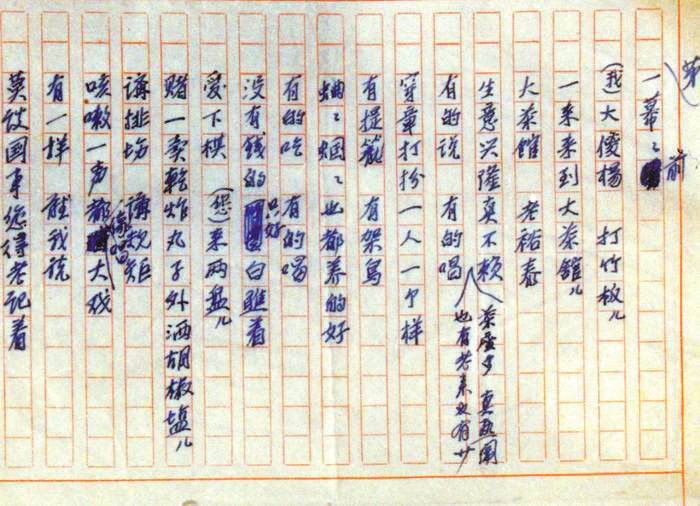 第
一幕之前
(我)大傻杨 打竹板儿
一来来到大茶馆儿
大茶馆 老裕泰
生意兴隆真不赖
茶座多 真热闹
也有老来也有少
有的说 有的唱
穿章打扮一人一个样
有提笼 有架鸟
蛐蛐蝈蝈也都养的好
有的吃 有的喝
没有钱的只好白瞧着
爱下棋 (您)来两盘儿
赌一卖乾炸丸子外洒胡椒盐儿
讲排场 讲规矩
咳嗽一声都像唱大戏
有一样 听我说
莫谈国事您得老记着